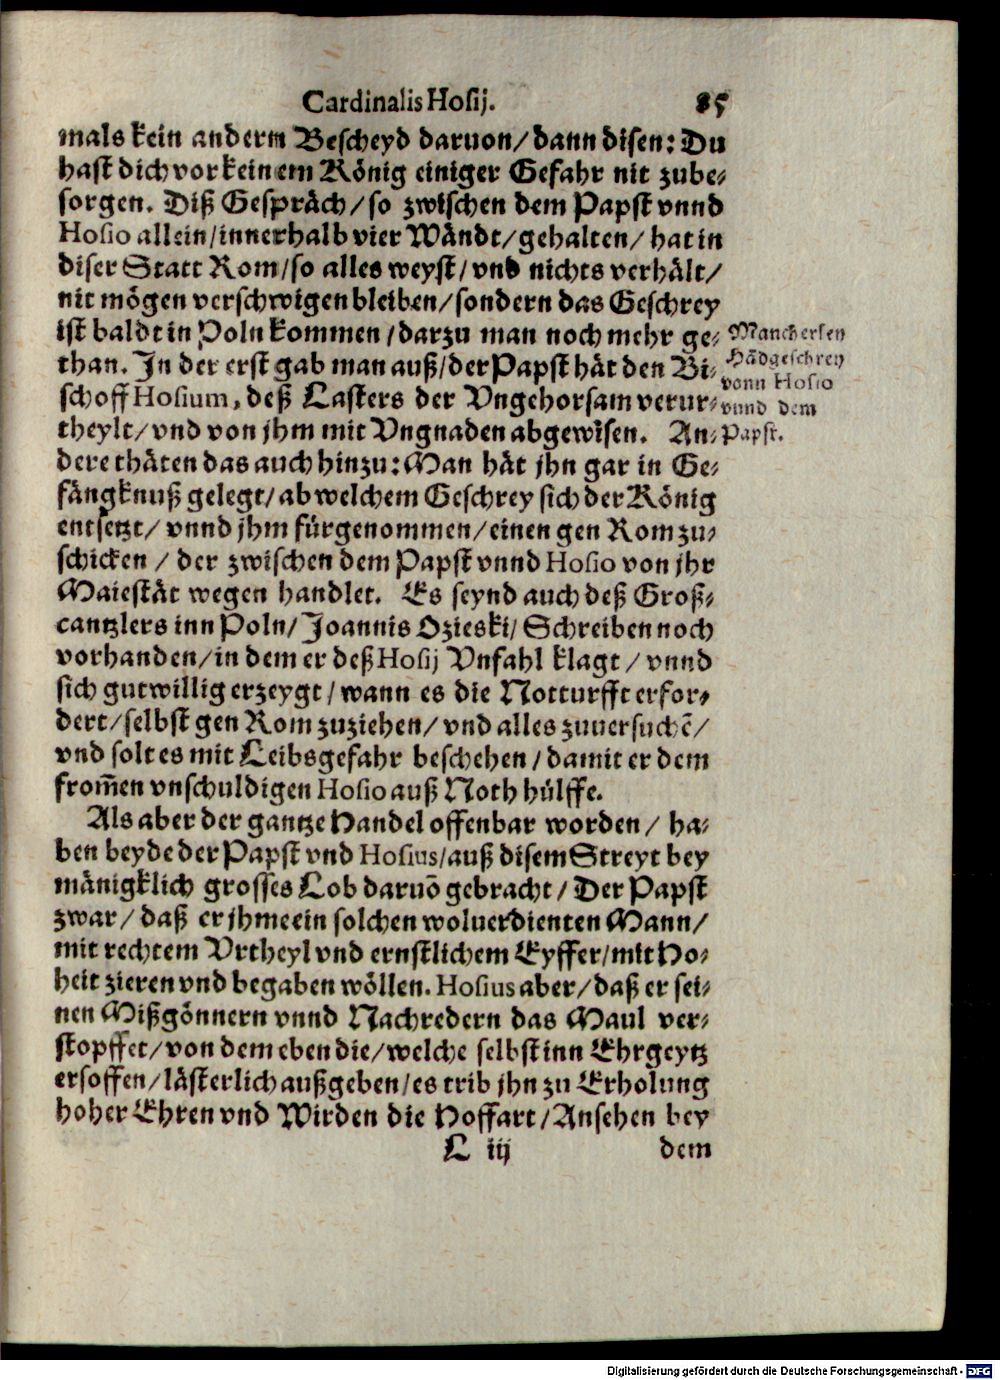 Cardinalis Hosij. 85
mals kein anderm Bescheyd daruon/ dann disen: Du
hast dich vor keinem König einiger Gefahr nit zube-
sorgen. Diß Gespräch/ so zwischen dem Papst vnnd
Hosio allein/ innerhalb vier Wändt/ gehalten/ hat in
diser Statt Rom/ so alles weyst/ vnd nichts verhält/
nit mögen verschwigen bleiben/ sondern das Geschrey
ist baldt in Poln kommen/ darzu man noch mehr ge-
than. In der erst gab man auß/ der Papst hät den Bi-
schoff Hosium, deß Lasters der Vngehorsam verur-
theylt/ vnd von jhm mit Vngnaden abgewisen. An-
dere thäten das auch hinzu: Man hät jhn gar in Ge-
fängknuß gelegt/ ab welchem Geschrey sich der König
entsetzt/ vnnd jhm fürgenommen/ einen gen Rom zu-
schicken / der zwischen dem Papst vnnd Hosio von jhr
Maiestät wegen handlet. Es seynd auch deß Groß-
cantzlers inn Poln/ Joannis Ozieski/ Schreiben noch
vorhanden/ in dem er deß Hosij Vnfahl klagt / vnnd
sich gutwillig erzeygt/ wann es die Notturfft erfor-
dert/ selbst gen Rom zuziehen/ vnd alles zuuersuchē/
vnd solt es mit Leibsgefahr beschehen/ damit er dem
from̃en vnschuldigen Hosio auß Noth hülffe.
Als aber der gantze Handel offenbar worden/ ha-
ben beyde der Papst vnd Hosius/ auß disem Streyt bey
mänigklich grosses Lob daruō gebracht/ Der Papst
zwar/ daß er jhme ein solchen woluerdienten Mann/
mit rechtem Vrtheyl vnd ernstlichem Eyffer/ mit Ho-
heit zieren vnd begaben wöllen. Hosius aber/ daß er sei-
nen Mißgönnern vnnd Nachredern das Maul ver-
stopffet/ von dem eben die/ welche selbst inn Ehrgeytz
ersoffen/ lästerlich außgeben/ es trib jhn zu Erholung
hoher Ehren vnd Wirden die Hoffart/ Ansehen bey
L iij dem
Mancherley
Hādgeschrey
vonn Hosio
vnnd dem
Papst.
Digitalisierung gefördert durch die Deutsche Forschungsgemeinschaft - DFG